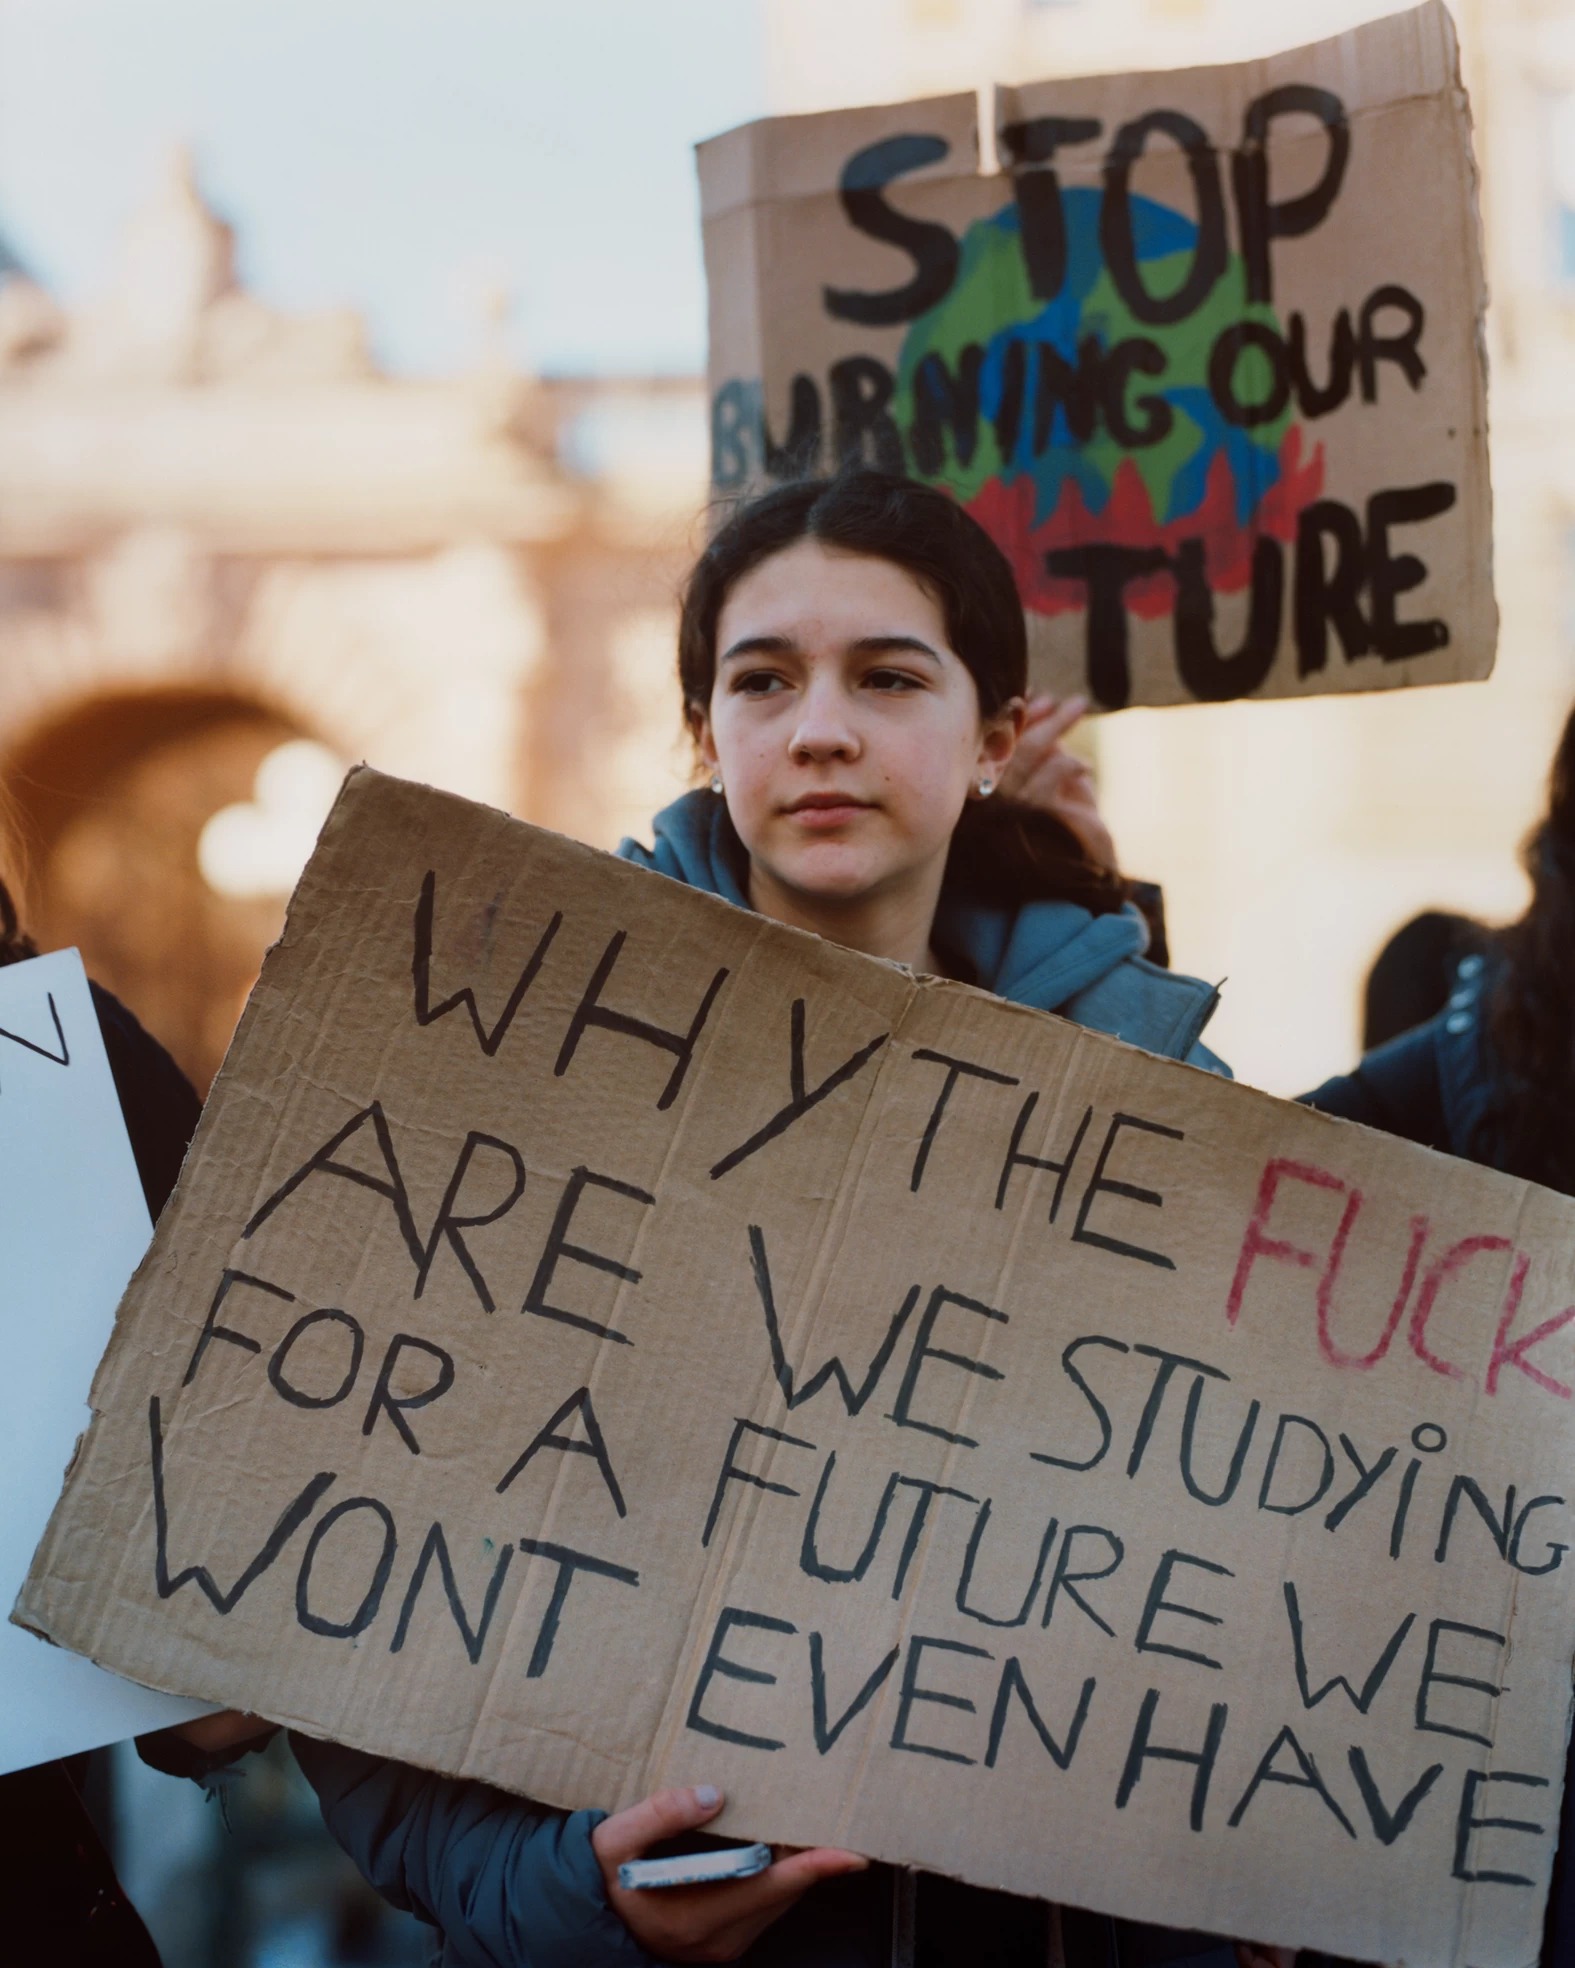 STOP
BURNING OUR
TURE
WHY THE FUCK
ARE WE STUDYiNG
FOR A FUTURE WE
WONT EVEN HAVE